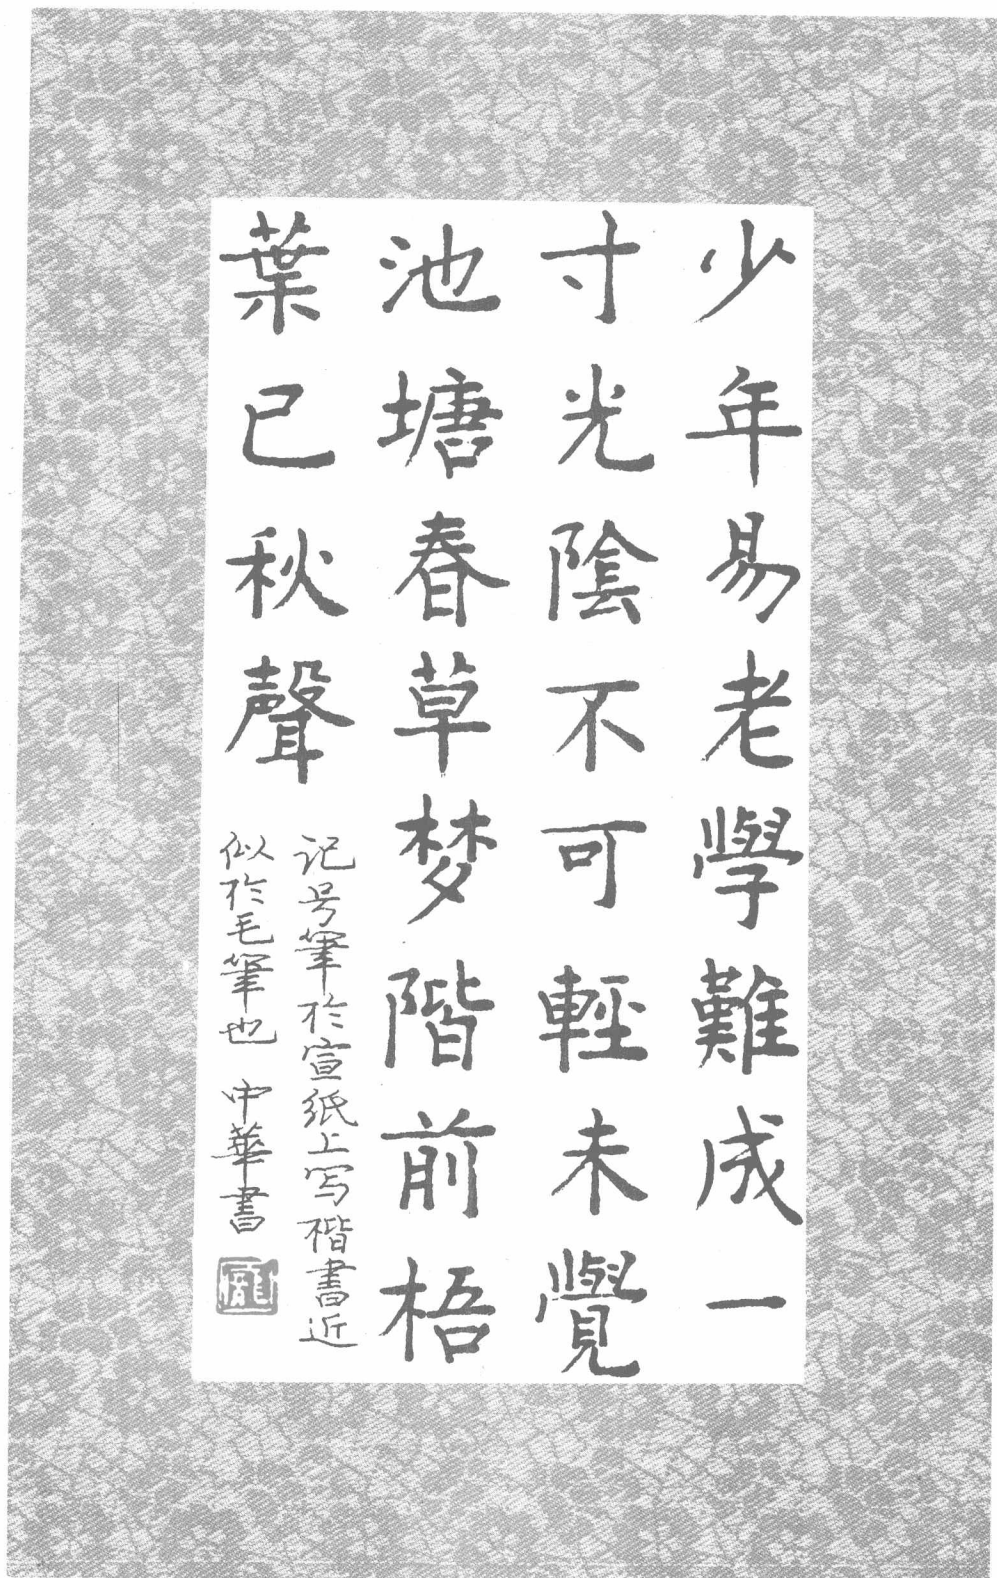 少年易老學難成一
寸光陰不可輕未覺
池塘春草梦階前梧
葉已秋聲
记号筆於宣紙上写楷書近
似於毛筆也 中華書